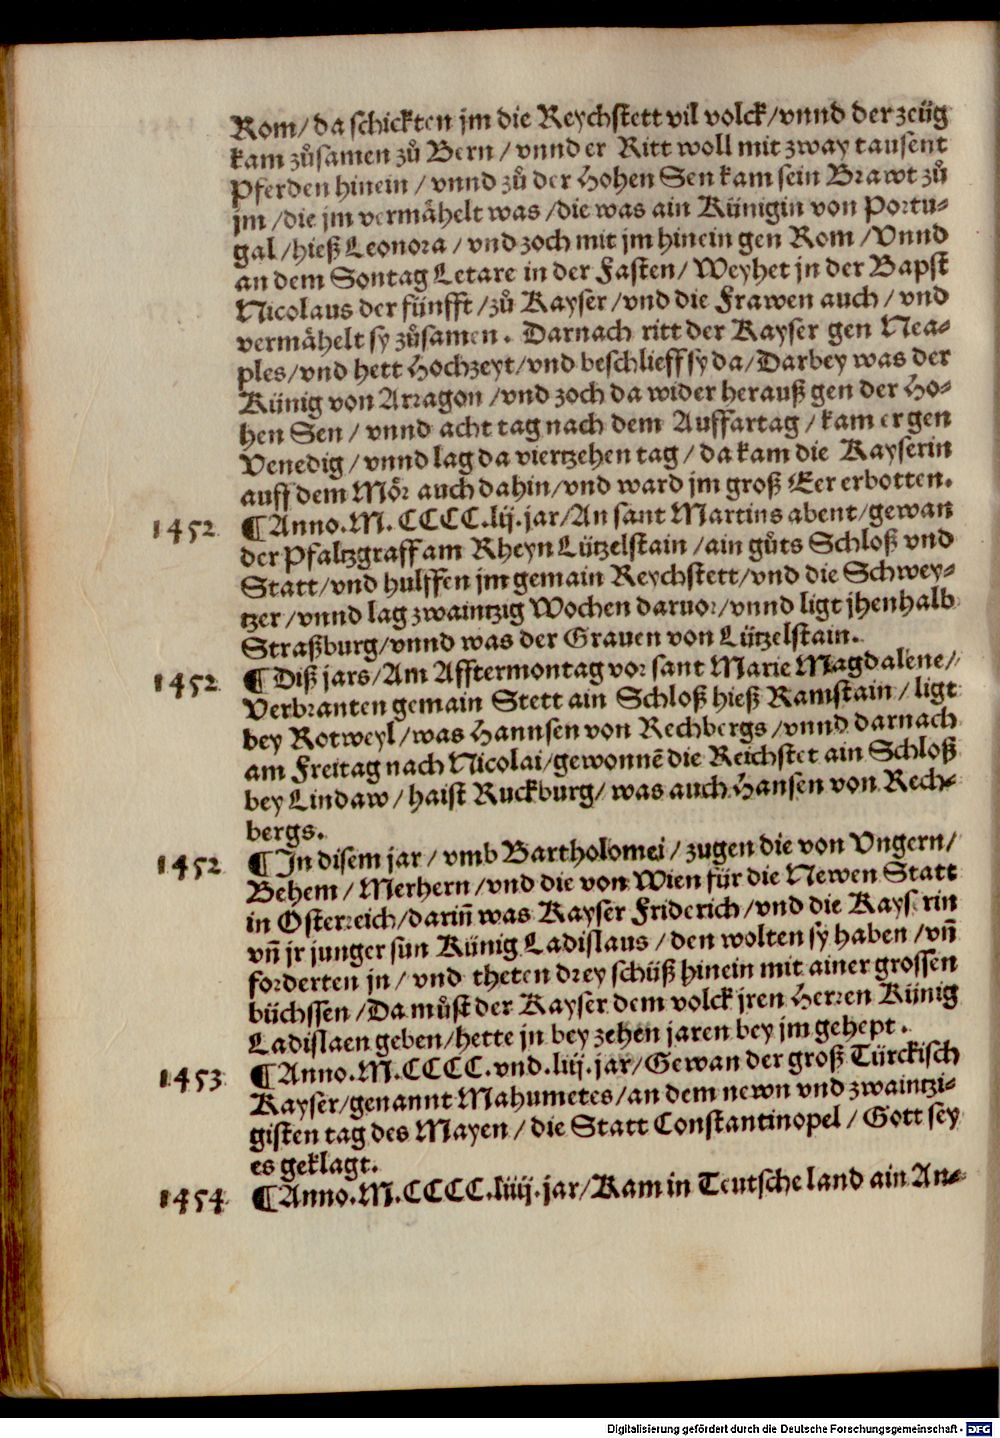 Rom/ da schickten jm die Reychstett vil volck/ vnnd der zeüg
kam zůsamen zů Bern / vnnd er Ritt woll mit zway tausent
Pferden hinein / vnnd zů der Hohen Sen kam sein Brawt zů
jm / die jm vermähelt was / die was ain Künigin von Portu-
gal / hieß Leonora / vnd zoch mit jm hinein gen Rom / Vnnd
an dem Sontag Letare in der Fasten / Weyhet jn der Bapst
Nicolaus der fünfft / zů Kayser / vnd die Frawen auch / vnd
vermähelt sy zůsamen. Darnach ritt der Kayser gen Nea-
ples/ vnd hett Hochzeyt/ vnd beschlieff sy da/ Darbey was der
Künig von Arragon / vnd zoch da wider herauß gen der Ho-
hen Sen / vnnd acht tag nach dem Auffartag / kam er gen
Venedig / vnnd lag da viertzehen tag / da kam die Kayserin
auff dem Mör auch dahin/ vnd ward jm groß Eer erbotten.
1452 ¶ Anno. M. CCCC. lij. jar/ An sant Martins abent/ gewan
der Pfaltzgraff am Rheyn Lützelstain / ain gůts Schloß vnd
Statt/ vnd hulffen jm gemain Reychstett/ vnd die Schwey-
tzer / vnnd lag zwaintzig Wochen daruor/ vnnd ligt jhenhalb
Straßburg/ vnnd was der Grauen von Lützelstain.
1452 ¶ Diß jars/ Am Afftermontag vor sant Marie Magdalene/
Verbranten gemain Stett ain Schloß hieß Ramstain / ligt
bey Rotweyl / was Hannsen von Rechbergs / vnnd darnach
am Freitag nach Nicolai/ gewonnē die Reichstet ain Schloß
bey Lindaw / haist Ruckburg/ was auch Hansen von Rech-
bergs.
1452 ¶ In disem jar / vmb Bartholomei / zugen die von Vngern/
Behem / Merhern / vnd die von Wien für die Newen Statt
in Osterreich/ dariñ was Kayser Friderich / vnd die Kayserin
vñ jr junger sun Künig Ladislaus / den wolten sy haben / vñ
forderten jn / vnd theten drey schüß hinein mit ainer grossen
büchssen / Da můst der Kayser dem volck jren Herren Künig
Ladislaen geben/ hette jn bey zehen jaren bey jm gehept.
1453 ¶ Anno. M. CCCC. vnd. liij. jar/ Gewan der groß Türckisch
Kayser/ genannt Mahumetes/ an dem newn vnd zwaintzi-
gisten tag des Mayen / die Statt Constantinopel / Gott sey
es geklagt.
1454 ¶ Anno. M. CCCC. liiij. jar/ Kam in Teutsche land ain An-
Digitalisierung gefördert durch die Deutsche Forschungsgemeinschaft - DFG